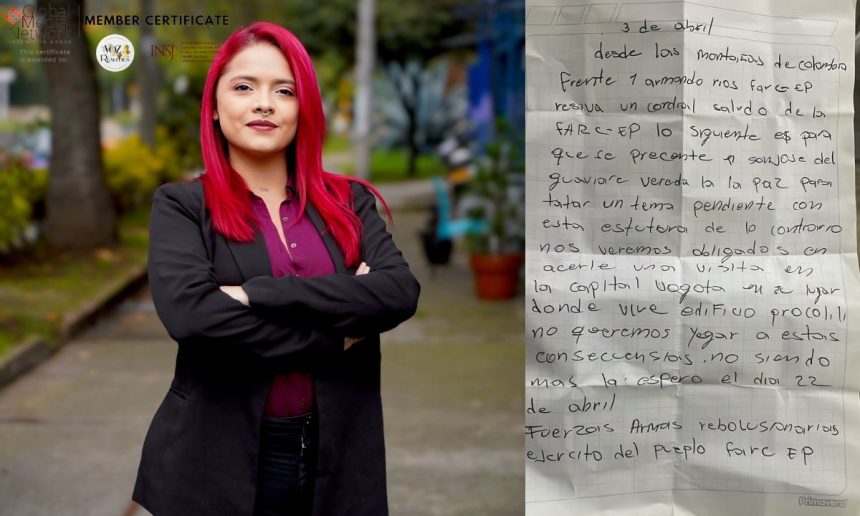 Global
Media
Network
MEMBER CERTIFICATE
This certificate
is awarded to:
VOZ
REALITIES
INSJ
3 de abril
desde las montañas de colombia
frente 1 armando rios farc-EP
resiva un cordial saludo de la
FARC-EP lo siguiente es para
que se precente n sanjose del
guaviare vereda la la paz para
tatar un tema pendiente con
esta estutura de lo contrario
nos veremos obligados en
acerle una visita en
la capital vogota en el lugar
donde vive edificio
no queremos yegar a estas
consecuensias. no siendo
mas la espero el dia 22
de abril
Fuerzas Armas rebolusionarias
ejercito del pueplo farc EP
Primavera